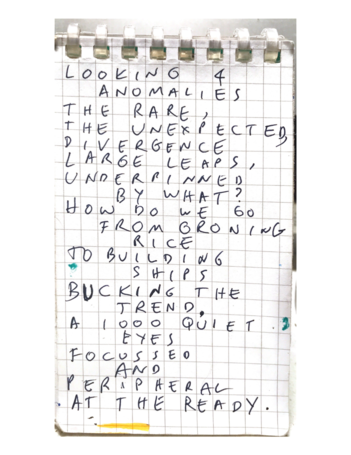 LOOKING 4
ANOMALIES
THE RARE,
THE UNEXPECTED,
DIVERGENCE
LARGE LEAPS,
UNDERPINNED
BY WHAT?
HOW DO WE GO
FROM GRONING
RICE
TO BUILDING
SHIPS
BUCKING THE
TREND.
A 1000 QUIET
EYES
FOCUSSED
AND
PERIPHERAL
AT THE READY.